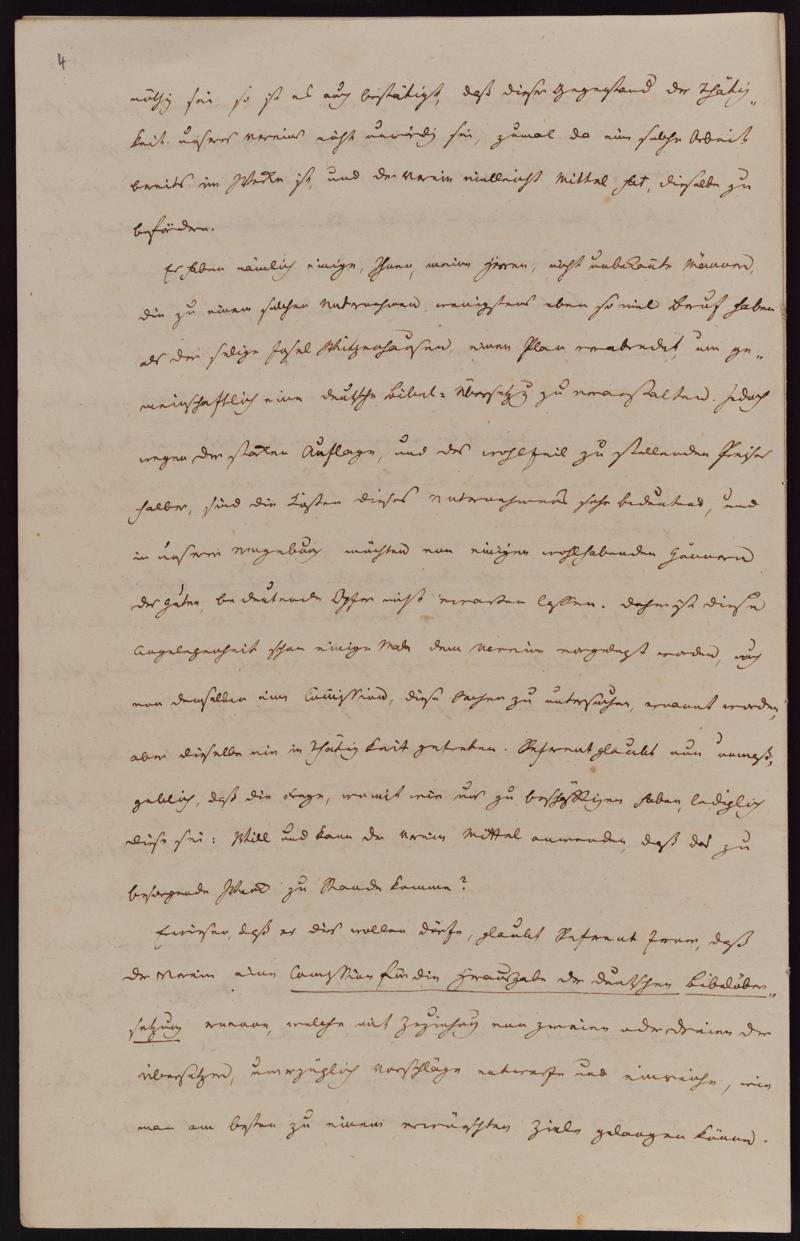 4
nöthig sei, so ist es auch bestätigt, daß dieser Gegenstand der Thätig„
keit unseres Vereins nicht unwürdig sei, zumal da eine solche Arbeit
bereits im Werke ist, und der Verein vielleicht Mittel hat, dieselbe zu
befördern.
Es haben nämlich einige, Ihnen, meine Herren, nicht unbekan̄te Männer,
die zu einem solchen Unternehmen wenigstens eben so viel Beruf haben
als der selige Josel Witzenhausen, einen Plan verabredet, um ge„
meinschaftlich eine deutsche Bibel-Übersetzg zu veranstalten. Jedoch
wegen der starken Auflage, und des wohlfeil zu stellenden Preises
halber, sind die Kosten dieses Unternehmens sehr bedeutend, und
in unserer Umgebung möchten von einigen wohlhabenden Gönnern
des Guten, bedeutende Opfer nicht erwarten lassen. Daher ist diese
Angelegenheit schon einige Male dem Verein vorgelegt worden, auch
von demselben eine Com̄ission, diese Sachen zu untersuchen, ernannt worden,
aber dieselbe nie in Thätigkeit getreten. Referent glaubt nun unmaß„
geblich, daß die Frage, womit wir uns zu beschäftigen haben, lediglich
diese sei: Will und kann der Verein Mittel anwenden, daß das zu
besorgende Werk zu Stande komme?
daß er dies wollen dürfe, glaubt Referent ferner, daß
der Verein eine Com̄ission für die Herausgabe der deutschen Bibelüber„
setzung ernenne, welche mit Zuziehung von zweien oder dreien der
Übersetzer, unverzüglich Vorschläge entwerfe und einreiche, wie
man am besten zu einem erwünschten Ziele gelangen könne.